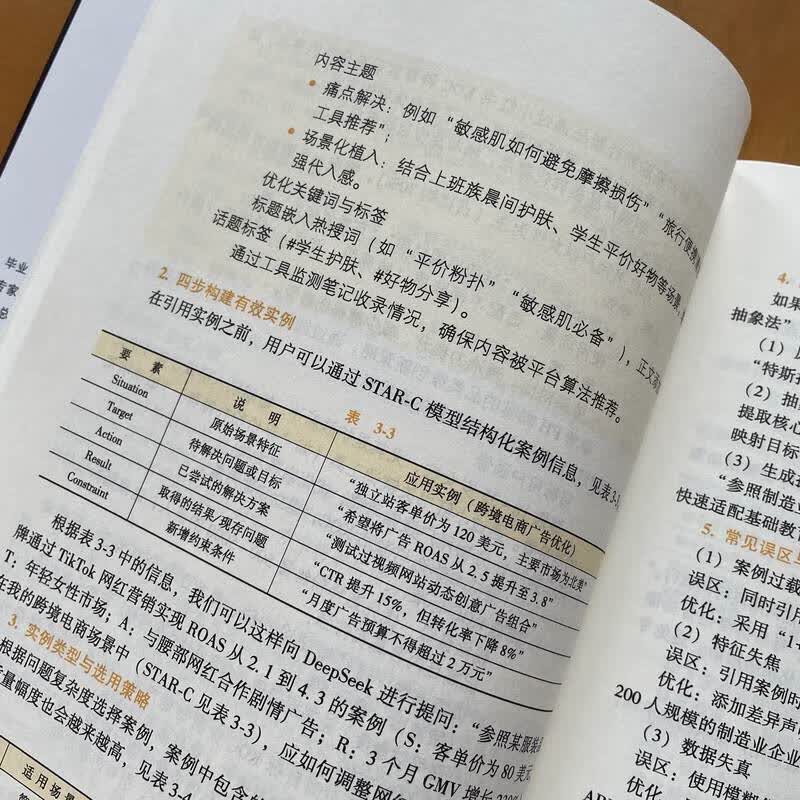 内容主题
• 痛点解决：例如“敏感肌如何避免摩擦损伤”“旅行便携
工具推荐”；
• 场景化植入：结合上班族晨间护肤、学生平价好物等场景，
强代入感。
优化关键词与标签
标题嵌入热搜词（如“平价粉扑”“敏感肌必备”），正文
话题标签（#学生护肤、#好物分享）。
通过工具监测笔记收录情况，确保内容被平台算法推荐。
2. 四步构建有效实例
在引用实例之前，用户可以通过 STAR-C 模型结构化案例信息，见表3-3
表 3-3
要 素 说 明 应用实例（跨境电商广告优化）
Situation 原始场景特征 “独立站客单价为 120 美元，主要市场为北美”
Target 待解决问题或目标 “希望将广告 ROAS 从 2.5 提升至 3.8”
Action 已尝试的解决方案 “测试过视频网站动态创意广告组合”
Result 取得的结果/现存问题 “CTR 提升 15%，但转化率下降 8%”
Constraint 新增约束条件 “月度广告预算不得超过 2 万元”
根据表 3-3 中的信息，我们可以这样问 DeepSeek 进行提问：“参照某服装品
牌通过 TikTok 网红营销实现 ROAS 从 2.1 到 4.3 的案例（S：客单价为 80 美元
T：年轻女性市场；A：与腰部网红合作剧情广告；R：3 个月 GMV 增长
在我的跨境电商场景中（STAR-C 见表3-3），应如何调整网红
3. 实例类型与选用策略
根据问题复杂度选择案例，案例中包含的
量幅度也会越来越高，见表3-4
适用场景
毕业
专家
总
4.
如果
抽象法”
（1）
“特斯拉
（2）抽
提取核心
映射目标
（3）生成
“参照制造业
快速适配基础教
5. 常见误区与
（1）案例过载
误区：同时引用
优化：采用“1+
（2）特征失焦
误区：引用案例时
优化：添加差异声
200 人规模的制造业企业
（3）数据失真
误区：使用模糊
优化